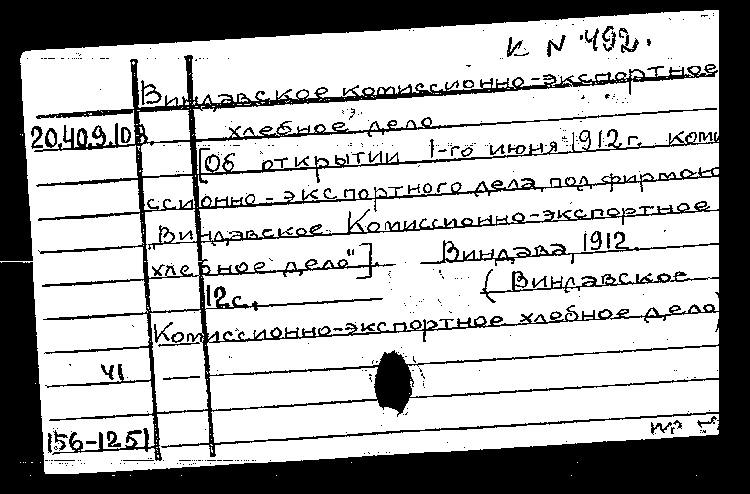 к N 492.
Виндавское комиссионно-экспортное
20.40.9.10в. хлебное дело
[Об открытии 1-го июня 1912 г. коми
ссионно-экспортного дела под фирмою
„Виндавское Комиссионно-экспортное
хлебное дело"] Виндава, 1912.
12с. (Виндавское
Комиссионно-экспортное хлебное дело)
ЧI
156-1251